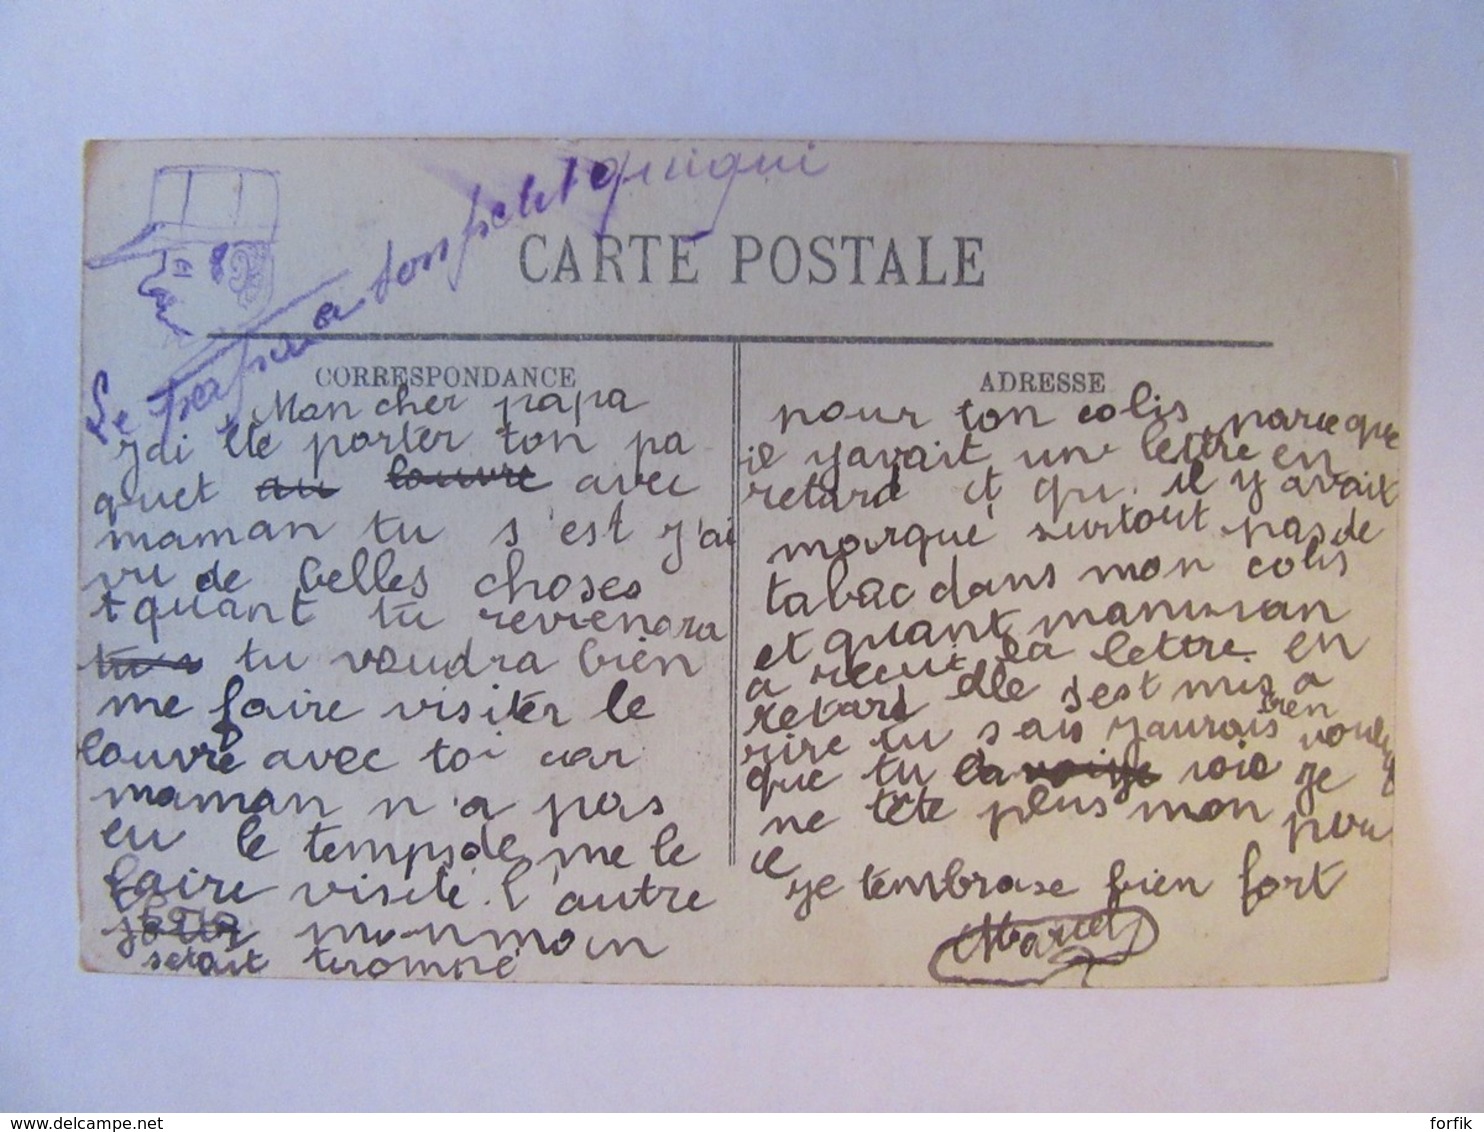 à ton petit quiqui
CARTE POSTALE
CORRESPONDANCE
Mon cher papa
j'ai été porter ton pa
quet au louvre avec
maman tu s'est j'ai
vu de belles choses
quant tu reviendra
tu voudra bien
me faire visiter le
louvre avec toi car
maman n'a pas
eu le temps de me le
faire visité l'autre
jour manman
setait trompé
ADRESSE
pour ton colis parceque
il yavait une lettre en
retard et qu'il y avait
marqué surtout pas de
tabac dans mon colis
et quant manman
a recut ta lettre en
retard elle s'est mis a
rire tu sais j'aurais bien voulu
que tu la voije je
ne tête plus mon pou
ce
je tembrasse bien fort
Marcel
forfik